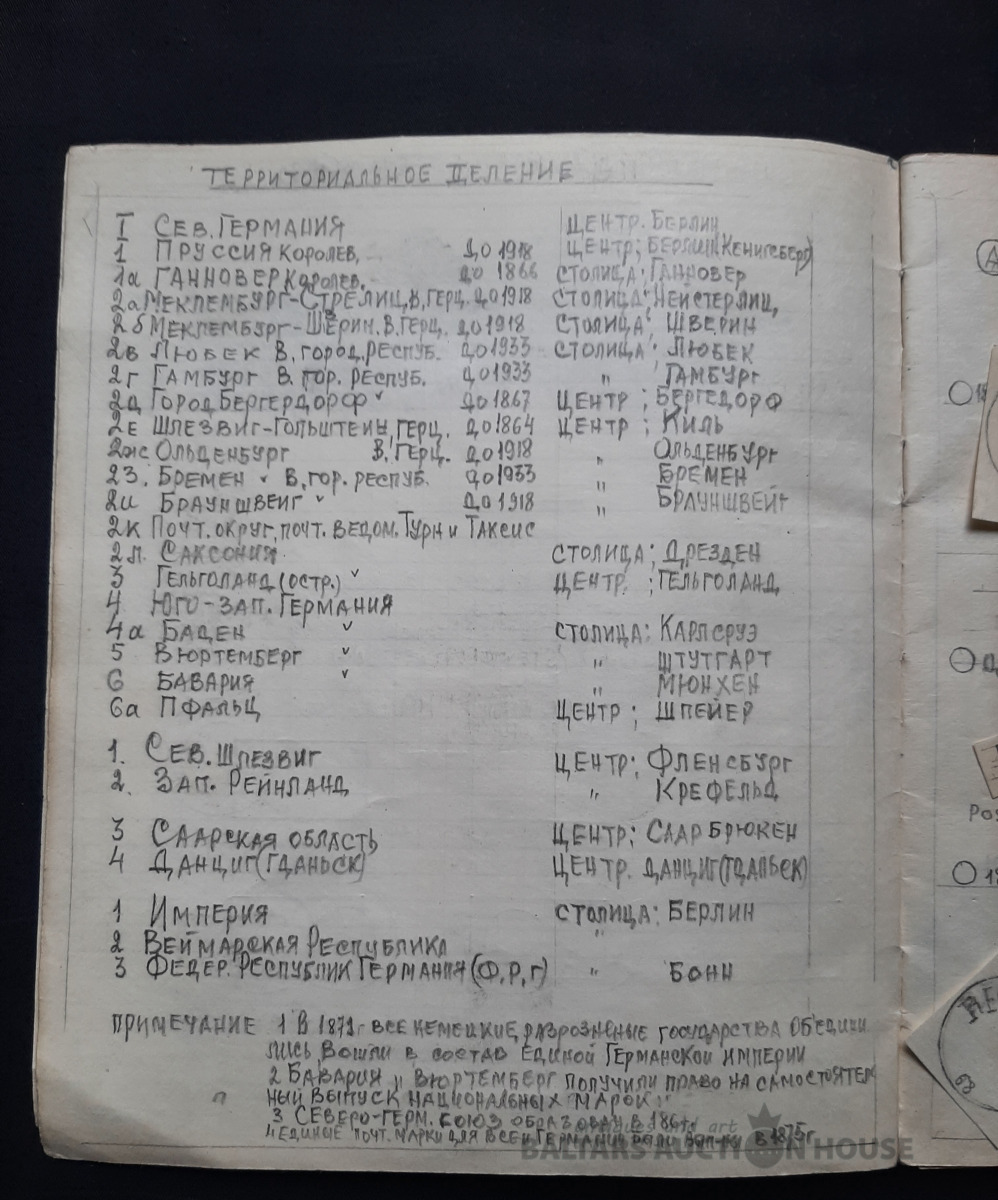 ТЕРРИТОРИАЛЬНОЕ ДЕЛЕНИЕ
I СЕВ. ГЕРМАНИЯ ЦЕНТР. БЕРЛИН
1 ПРУССИЯ КОРОЛЕВ. ДО 1918 ЦЕНТР; БЕРЛИН (КЕНИГСБЕРГ)
1а ГАННОВЕР КОРОЛЕВ. ДО 1866 СТОЛИЦА; ГАННОВЕР
2а МЕКЛЕМБУРГ-СТРЕЛИЦ, В, ГЕРЦ. ДО 1918 СТОЛИЦА; НЕЙСТЕРЛИЦ,
2б МЕКЛЕМБУРГ-ШЕРИН. В. ГЕРЦ. ДО 1918 СТОЛИЦА; ШВЕРИН
2в ЛЮБЕК В, ГОРОД, РЕСПУБ. ДО 1933 СТОЛИЦА; ЛЮБЕК
2г ГАМБУРГ В. ГОР. РЕСПУБ. ДО 1933 " ГАМБУРГ
2д ГОРОД БЕРГЕРДОРФ ˅ ДО 1867 ЦЕНТР; БЕРГЕДОРФ
2Е ШЛЕЗВИГ-ГОЛЬШТЕЙН, ГЕРЦ. ДО 1864 ЦЕНТР; КИЛЬ
2ж ОЛЬДЕНБУРГ В. ГЕРЦ. ДО 1918 " ОЛЬДЕНБУРГ
2З. БРЕМЕН ˅ В, ГОР. РЕСПУБ. ДО 1933 " БРЕМЕН
2и БРАУНШВЕИГ ˅ ДО 1918 " БРАУНШВЕЙГ
2К ПОЧТ. ОКРУГ, ПОЧТ. ВЕДОМ. ТУРН И ТАКСИС
2Л. САКСОНИЯ СТОЛИЦА; ДРЕЗДЕН
3 ГЕЛЬГОЛАНД (ОСТР.) ˅ ЦЕНТР; ГЕЛЬГОЛАНД
4 ЮГО-ЗАП. ГЕРМАНИЯ
4а БАДЕН ˅ СТОЛИЦА; КАРЛСРУЭ
5 ВЮРТЕМБЕРГ ˅ " ШТУТГАРТ
6 БАВАРИЯ ˅ " МЮНХЕН
6а ПФАЛЬЦ ЦЕНТР; ШПЕЙЕР
1. СЕВ. ШЛЕЗВИГ ЦЕНТР; ФЛЕНСБУРГ
2. ЗАП. РЕЙНЛАНД " КРЕФЕЛЬД
3 СААРСКАЯ ОБЛАСТЬ ЦЕНТР; СААРБРЮКЕН
4 ДАНЦИГ (ГДАНЬСК) ЦЕНТР. ДАНЦИГ (ГДАНЬСК)
1 ИМПЕРИЯ СТОЛИЦА; БЕРЛИН
2 ВЕЙМАРСКАЯ РЕСПУБЛИКА "
3 ФЕДЕР. РЕСПУБЛИК ГЕРМАНИЯ (Ф, Р, Г) " БОНН
ПРИМЕЧАНИЕ 1 В 1871г ВСЕ НЕМЕЦКИЕ, РАЗРОЗНЕНЫЕ ГОСУДАРСТВА ОБ'ЕДИНИ
ЛИСЬ, ВОШЛИ В СОСТАВ ЕДИНОЙ ГЕРМАНСКОЙ ИМПЕРИИ
2 БАВАРИЯ И ВЮРТЕМБЕРГ ПОЛУЧИЛИ ПРАВО НА САМОСТОЯТЕЛ
НЫЙ ВЫПУСК НАЦИОНАЛЬНЫХ МАРОК
3 СЕВЕРО-ГЕРМ. СОЮЗ ОБРАЗОВАН В
4 ЕДИНЫЕ ПОЧТ. МАРКИ ДЛЯ ВСЕЙ ГЕРМАНИИ В 1875г
art
BALTARS AUCTION HOUSE
68